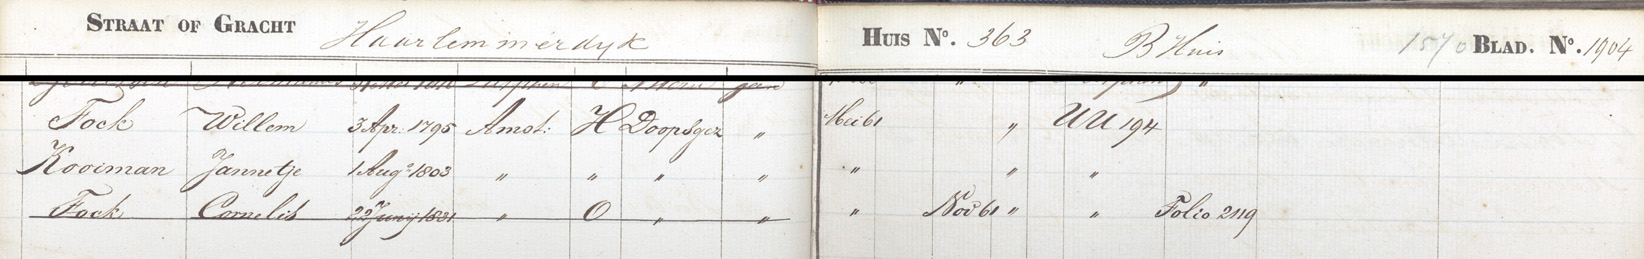 STRAAT OF GRACHT Haarlemmerdyk HUIS No. 363 B Huis 1570 BLAD. No. 1904
Fock Willem 3 Apr. 1795 Amst: H Doopsgez " Mei 61 " UU 194
Kooiman Jannetje 1 Aug 1803 " " " " " " "
Fock Cornelis 22 Junij 1831 " O " " " Nov 61 " " Folio 2119